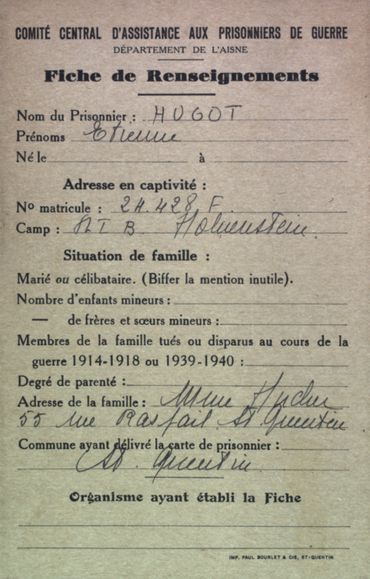 COMITÉ CENTRAL D'ASSISTANCE AUX PRISONNIERS DE GUERRE
DÉPARTEMENT DE L'AISNE
Fiche de Renseignements
Nom du Prisonnier : HUGOT
Prénoms Etienne
Né le à
Adresse en captivité :
No matricule : 24.428 F
Camp : B Hohenstein.
Situation de famille :
Marié ou célibataire. (Biffer la mention inutile).
Nombre d'enfants mineurs :
— de frères et sœurs mineurs :
Membres de la famille tués ou disparus au cours de la
guerre 1914-1918 ou 1939-1940 :
Degré de parenté :
Adresse de la famille : Mme
55 rue Raspail St Quentin
Commune ayant délivré la carte de prisonnier :
St. Quentin.
Organisme ayant établi la Fiche
IMP. PAUL BOURLET & CIE, ST-QUENTIN